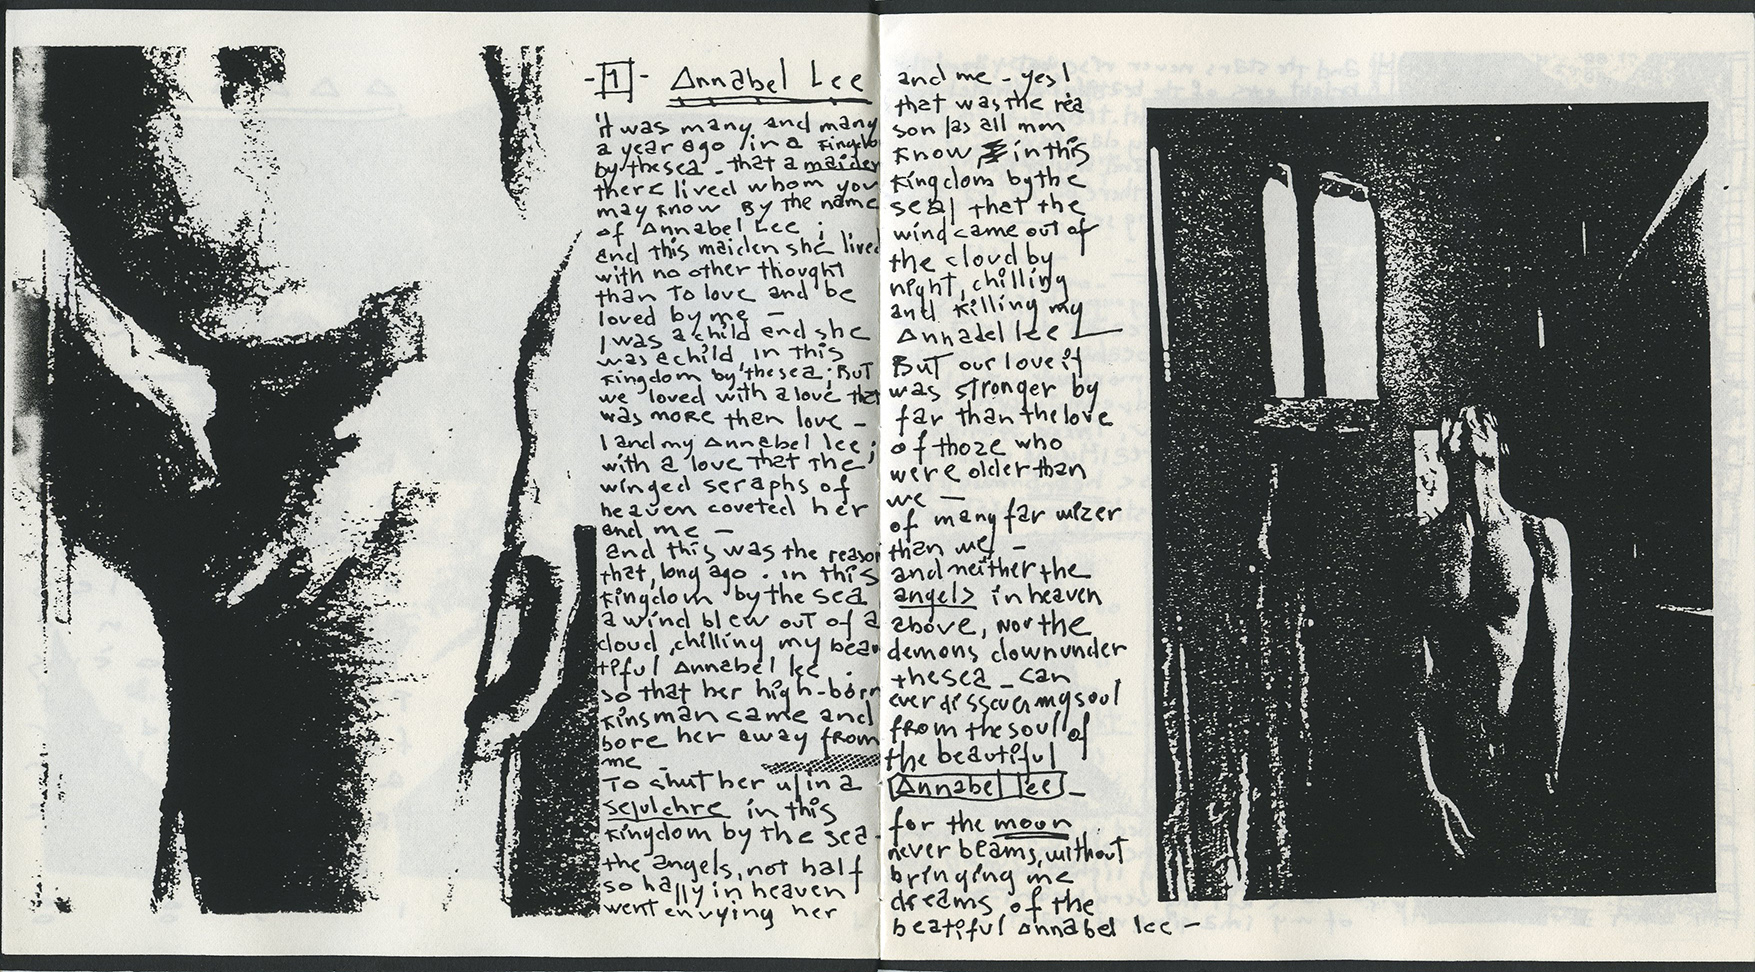 -1- Annabel Lee
it was many and many
a year ago in a Kingdo
by the sea - that a maiden
there lived whom you
may know By the name
of Annabel Lee ;
and this maiden she lived
with no other thought
than To love and be
loved by me -
I was a child and she
was a child, in this
Kingdom by the sea; BuT
we loved with a love that
was more than love -
I and my Annabel lee ;
with a love that the
winged seraphs of
heaven coveted her
and me -
and this was the reason
that, long ago . in this
Kingdom by the sea
a wind blew ouT of a
cloud, chilling my beau
tiful Annabel lee .
so that her high-born
Kinsman came and
bore her away from
me -
To shut her up in a
sepulchre in this
Kingdom by the sea -
the angels, not half
so happy in heaven
went envying her
and me - yes!
that was the rea
son (as all men
Know, in this
Kingdom by the
sea) that the
wind came out of
the cloud by
night, chilling
and Killing my
Annabel lee -
BuT our love it
was stronger by
far than the love
of those who
were older than
we -
of many far wizer
than we -
and neither the
angels in heaven
above, Nor the
demons down under
the sea - can
ever dissever my soul
from the soul of
the beautiful
Annabel lee -
for the moon
never beams, without
bringing me
dreams of the
beatiful Annabel lee -